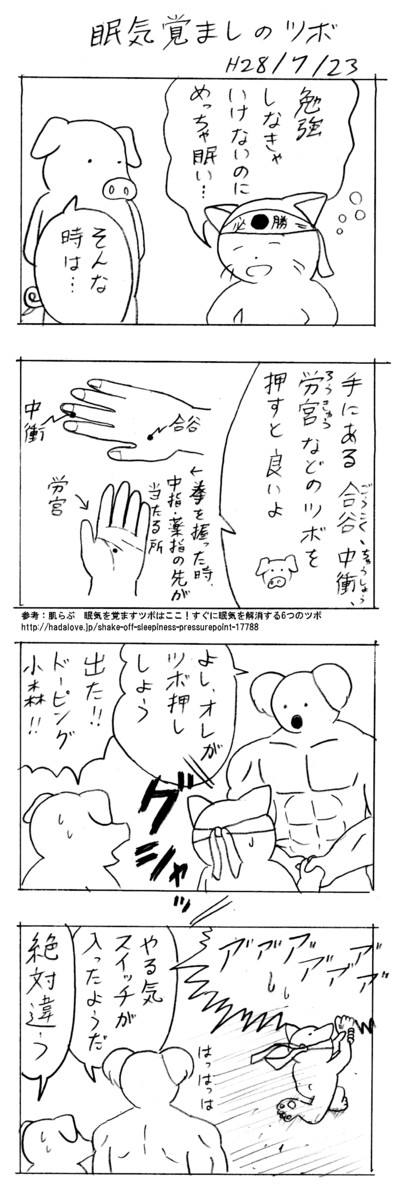 眠気覚ましのツボ
H28/7/23
勉強
しなきゃ
いけないのに
めっちゃ眠い…
必勝
そんな
時は…
手にある合谷、中衝、
ごうこく
ちゅうしょう
労宮などのツボを
ろうきゅう
押すと良いよ
中衝
合谷
労宮
←拳を握った時、
中指・薬指の先が
当たる所
参考：肌らぶ　眠気を覚ますツボはここ！すぐに眠気を解消する6つのツボ
http://hadalove.jp/shake-off-sleepiness-pressurepoint-17788
よし、オレが
ツボ押し
しよう
出た!!
ドーピング
小森!!
グシャッ
アアアアアアア
やる気
スイッチが
入ったようだ
はっはっは
絶対違う